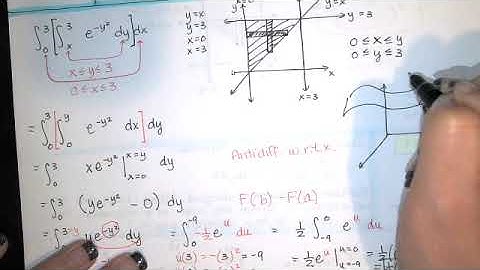 ∫₀³ [∫ₓ³ e^(-y²) dy] dx
x ≤ y ≤ 3
0 ≤ x ≤ 3
y=x
y=3
x=0
x=3
y=x
y=3
x
x=3
0 ≤ x ≤ y
0 ≤ y ≤ 3
= ∫₀³ [∫₀^y e^(-y²) dx] dy
= ∫₀³ xe^(-y²) |_(x=0)^(x=y) dy
Antidiff w.r.t. x
= ∫₀³ (ye^(-y²) - 0) dy
F(b) - F(a)
= ∫₀^(3=y) ye^(-y²) dy
= ∫₀^(-9) -½ e^u du = ½ ∫₋₉⁰ e^u du
u(3) = -(3)² = -9
= ½ e^u |_(u=-9)^(u=0)